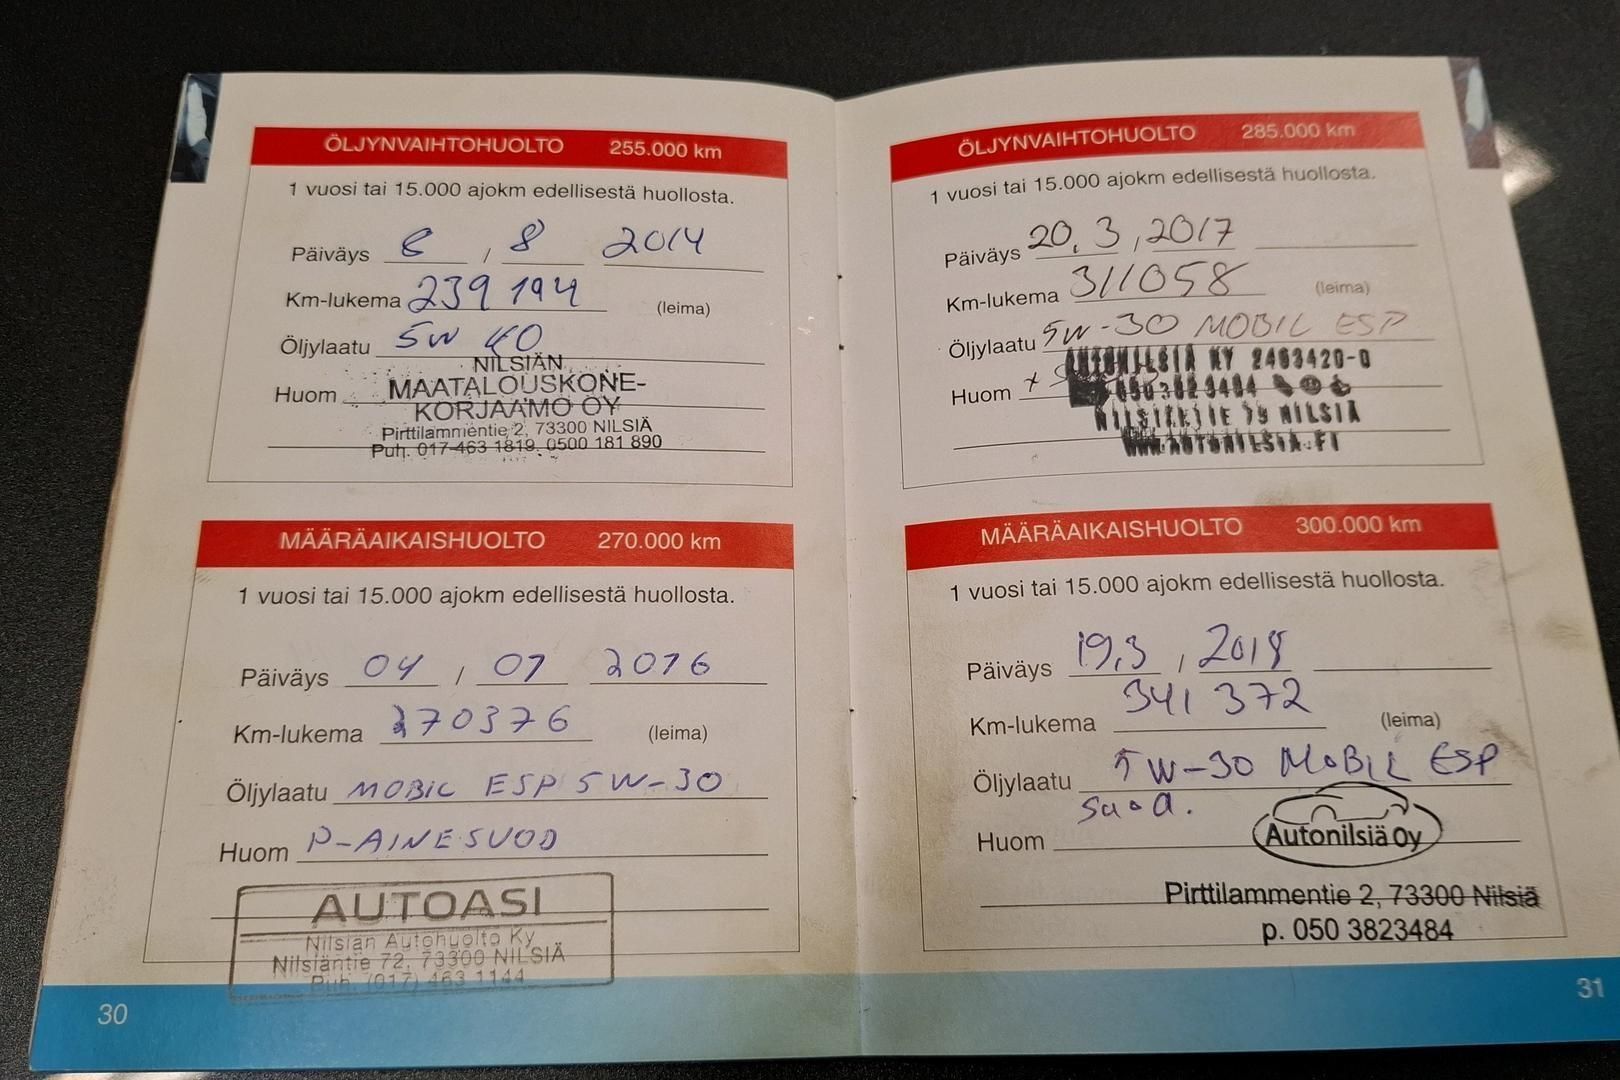 ÖLJYNVAIHTOHUOLTO 255.000 km
1 vuosi tai 15.000 ajokm edellisestä huollosta.
Päiväys 8 , 8 2014
Km-lukema 239 194 (leima)
Öljylaatu 5W 40
Huom
NILSIÄN
MAATALOUSKONE-
KORJAAMO OY
Pirttilammentie 2, 73300 NILSIÄ
Puh. 017-463 1819, 0500 181 890
MÄÄRÄAIKAISHUOLTO 270.000 km
1 vuosi tai 15.000 ajokm edellisestä huollosta.
Päiväys 04 / 07 2016
Km-lukema 270376 (leima)
Öljylaatu MOBIL ESP 5W-30
Huom P-AINESUOD
AUTOASI
Nilsiän Autohuolto Ky
Nilsiäntie 72, 73300 NILSIÄ
Puh. (017) 463 1144
30
ÖLJYNVAIHTOHUOLTO 285.000 km
1 vuosi tai 15.000 ajokm edellisestä huollosta.
Päiväys 20.3,2017
Km-lukema 311058 (leima)
Öljylaatu 5W-30 MOBIL ESP
Huom +
AUTONILSIÄ KY 2463420-0
050 3823484
NILSIÄ
WWW.AUTONILSIA.FI
MÄÄRÄAIKAISHUOLTO 300.000 km
1 vuosi tai 15.000 ajokm edellisestä huollosta.
Päiväys 19.3 , 2018
Km-lukema 341 372 (leima)
Öljylaatu 5W-30 MOBIL ESP
Huom suod.
Autonilsiä Oy
Pirttilammentie 2, 73300 Nilsiä
p. 050 3823484
31